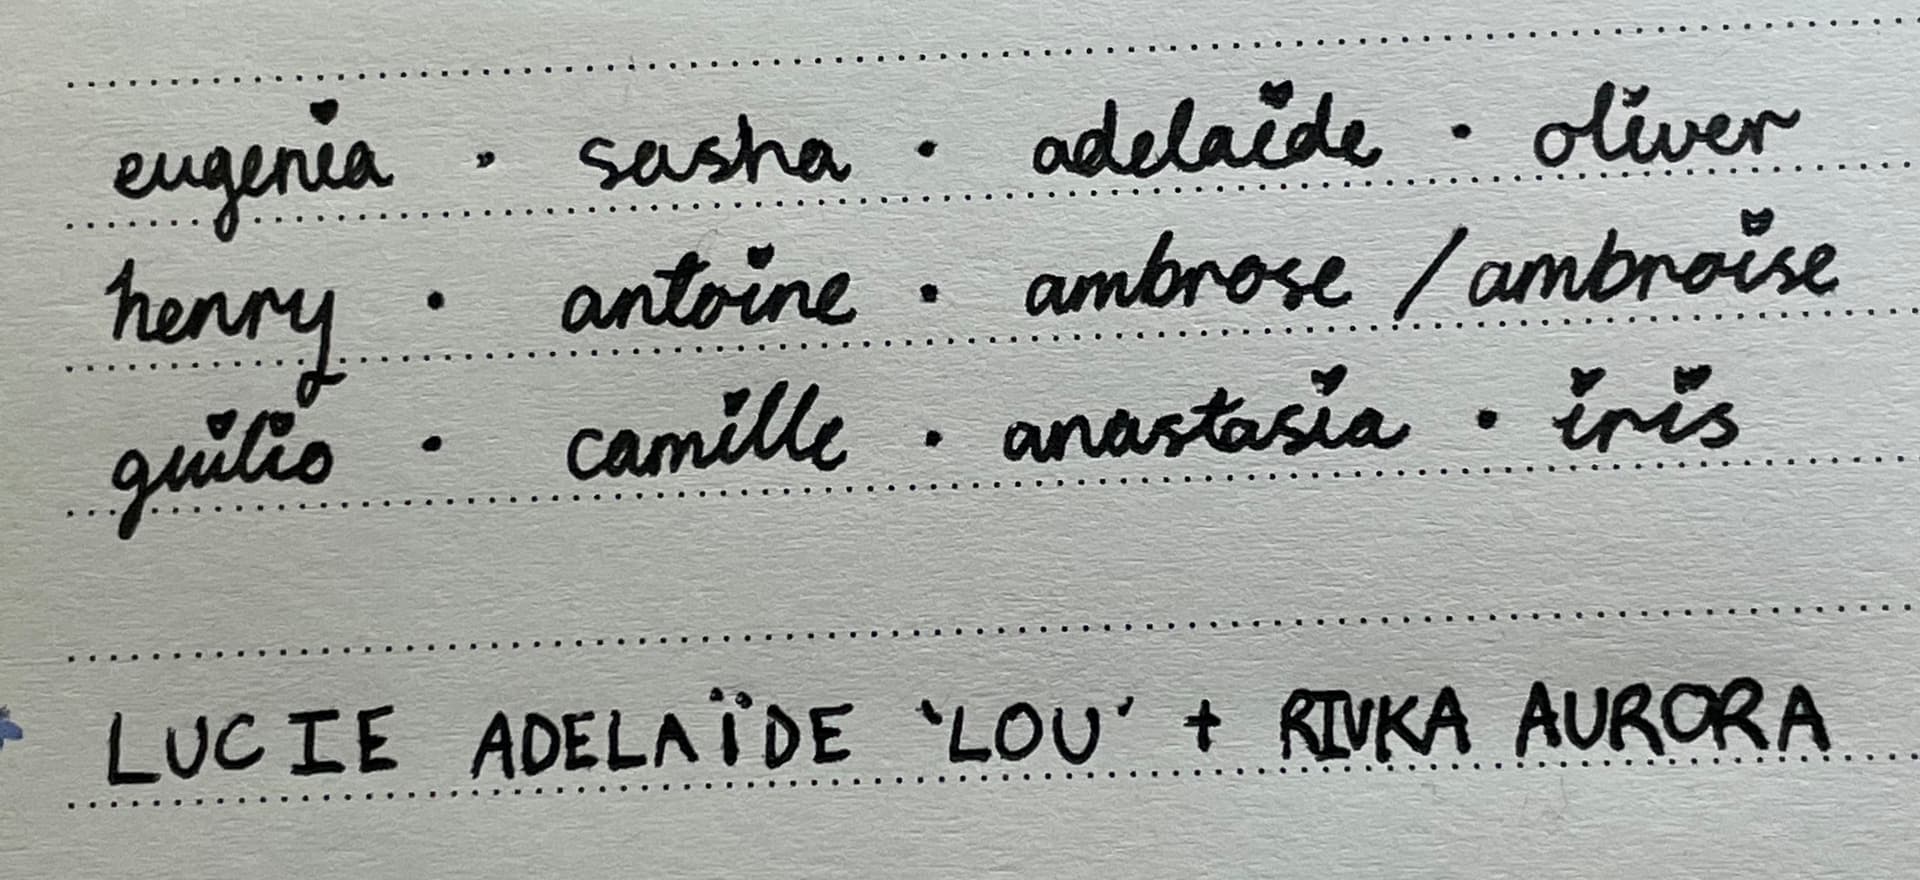 eugenia · sasha · adelaide · oliver
henry · antoine · ambrose / ambroise
guilio · camille · anastasia · iris
LUCIE ADELAÏDE 'LOU' + RIVKA AURORA